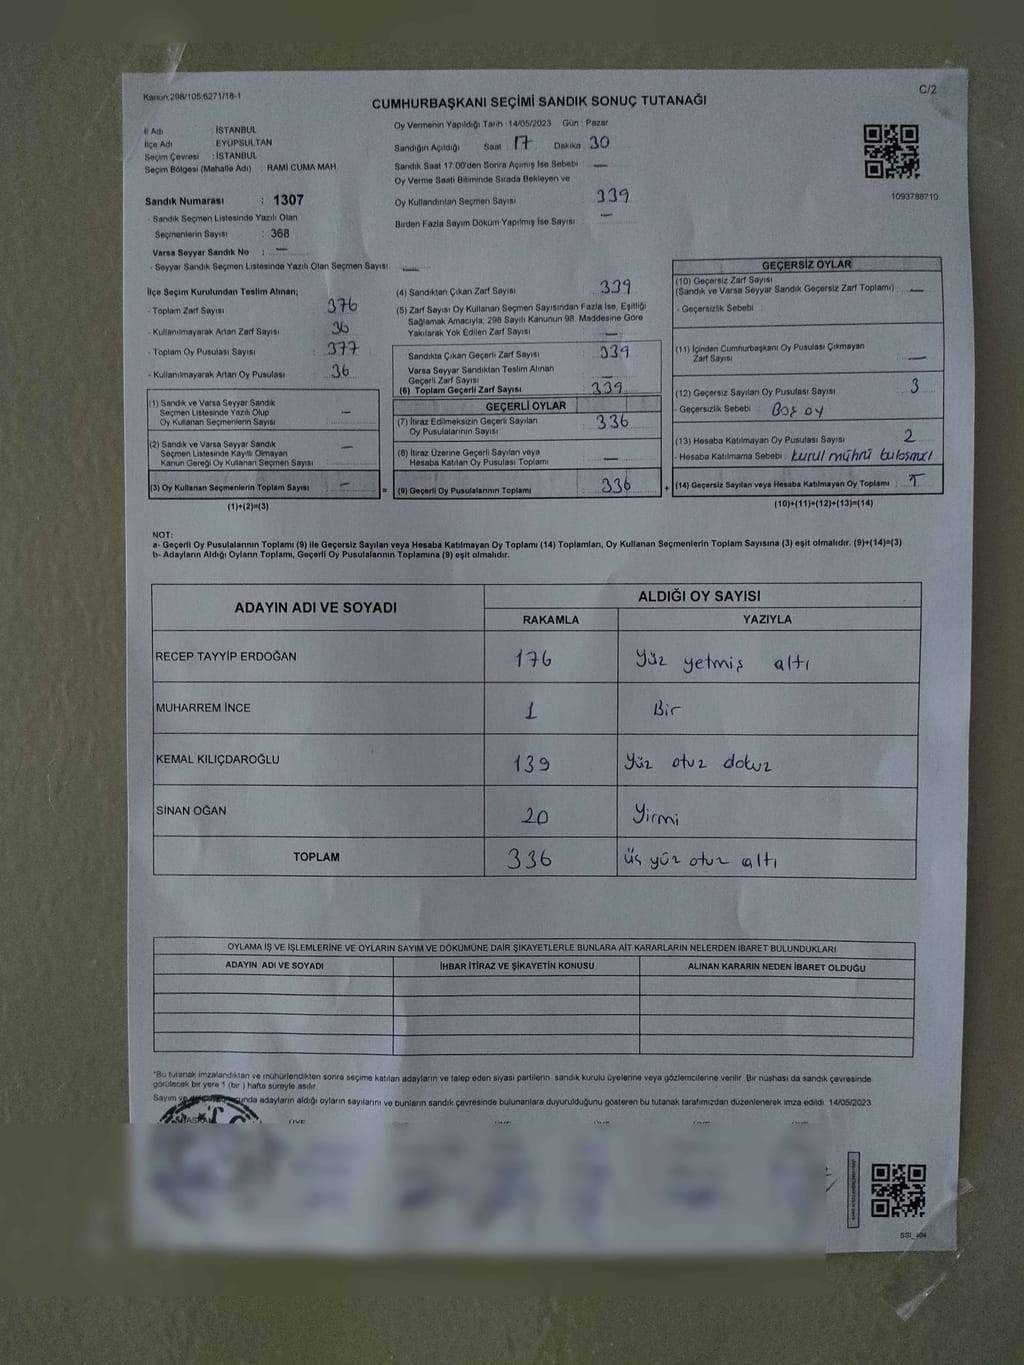 Kanun:298/105;6271/18-1
C/2
CUMHURBAŞKANI SEÇİMİ SANDIK SONUÇ TUTANAĞI
İl Adı : İSTANBUL
İlçe Adı : EYÜPSULTAN
Seçim Çevresi : İSTANBUL
Seçim Bölgesi (Mahalle Adı) : RAMİ CUMA MAH.
Sandık Numarası : 1307
- Sandık Seçmen Listesinde Yazılı Olan
Seçmenlerin Sayısı : 368
Varsa Seyyar Sandık No : —
- Seyyar Sandık Seçmen Listesinde Yazılı Olan Seçmen Sayısı: —
Oy Vermenin Yapıldığı Tarih :14/05/2023 Gün : Pazar
Sandığın Açıldığı Saat 17 Dakika 30
Sandık Saat 17.00'den Sonra Açımış İse Sebebi —
Oy Verme Saati Bitiminde Sırada Bekleyen ve
Oy Kullandırılan Seçmen Sayısı 339
Birden Fazla Sayım Döküm Yapılmış İse Sayısı : —
1093788710
İlçe Seçim Kurulundan Teslim Alınan;
- Toplam Zarf Sayısı : 376
- Kullanılmayarak Artan Zarf Sayısı : 36
- Toplam Oy Pusulası Sayısı : 377
- Kullanılmayarak Artan Oy Pusulası : 36
(1) Sandık ve Varsa Seyyar Sandık
Seçmen Listesinde Yazılı Olup
Oy Kullanan Seçmenlerin Sayısı —
(2) Sandık ve Varsa Seyyar Sandık
Seçmen Listesinde Kayıtlı Olmayan
Kanun Gereği Oy Kullanan Seçmen Sayısı —
(3) Oy Kullanan Seçmenlerin Toplam Sayısı —
(1)+(2)=(3)
(4) Sandıktan Çıkan Zarf Sayısı : 339
(5) Zarf Sayısı Oy Kullanan Seçmen Sayısından Fazla İse, Eşitliği
Sağlamak Amacıyla, 298 Sayılı Kanunun 98. Maddesine Göre
Yakılarak Yok Edilen Zarf Sayısı : —
Sandıkta Çıkan Geçerli Zarf Sayısı : 339
Varsa Seyyar Sandıktan Teslim Alınan
Geçerli Zarf Sayısı : —
(6) Toplam Geçerli Zarf Sayısı : 339
GEÇERLİ OYLAR
(7) İtiraz Edilmeksizin Geçerli Sayılan
Oy Pusulalarının Sayısı : 336
(8) İtiraz Üzerine Geçerli Sayılan veya
Hesaba Katılan Oy Pusulası Toplamı : —
= (9) Geçerli Oy Pusulalarının Toplamı : 336 +
GEÇERSİZ OYLAR
(10) Geçersiz Zarf Sayısı
(Sandık ve Varsa Seyyar Sandık Geçersiz Zarf Toplamı) : —
- Geçersizlik Sebebi :
(11) İçinden Cumhurbaşkanı Oy Pusulası Çıkmayan
Zarf Sayısı : —
(12) Geçersiz Sayılan Oy Pusulası Sayısı : 3
- Geçersizlik Sebebi : Boş oy
(13) Hesaba Katılmayan Oy Pusulası Sayısı : 2
- Hesaba Katılmama Sebebi : kurul mührü
(14) Geçersiz Sayılan veya Hesaba Katılmayan Oy Toplamı :
(10)+(11)+(12)+(13)=(14)
NOT:
a- Geçerli Oy Pusulalarının Toplamı (9) ile Geçersiz Sayılan veya Hesaba Katılmayan Oy Toplamı (14) Toplamları, Oy Kullanan Seçmenlerin Toplam Sayısına (3) eşit olmalıdır. (9)+(14)=(3)
b- Adayların Aldığı Oyların Toplamı, Geçerli Oy Pusulalarının Toplamına (9) eşit olmalıdır.
ADAYIN ADI VE SOYADI
ALDIĞI OY SAYISI
RAKAMLA YAZIYLA
RECEP TAYYİP ERDOĞAN 176 Yüz yetmiş altı
MUHARREM İNCE 1 Bir
KEMAL KILIÇDAROĞLU 139 Yüz otuz dokuz
SİNAN OĞAN 20 Yirmi
TOPLAM 336 üç yüz otuz altı
OYLAMA İŞ VE İŞLEMLERİNE VE OYLARIN SAYIM VE DÖKÜMÜNE DAİR ŞİKAYETLERLE BUNLARA AİT KARARLARIN NELERDEN İBARET BULUNDUKLARI
ADAYIN ADI VE SOYADI İHBAR İTİRAZ VE ŞİKAYETİN KONUSU ALINAN KARARIN NEDEN İBARET OLDUĞU
"Bu tutanak imzalandıktan ve mühürlendikten sonra seçime katılan adayların ve talep eden siyasi partilerin sandık kurulu üyelerine veya gözlemcilerine verilir. Bir nüshası da sandık çevresinde
görülecek bir yere 1 (bir ) hafta süreyle asılır.
Sayım ve adayların aldığı oyların sayılarını ve bunların sandık çevresinde bulunanlara duyurulduğunu gösteren bu tutanak tarafımızdan düzenlenerek imza edildi. 14/05/2023